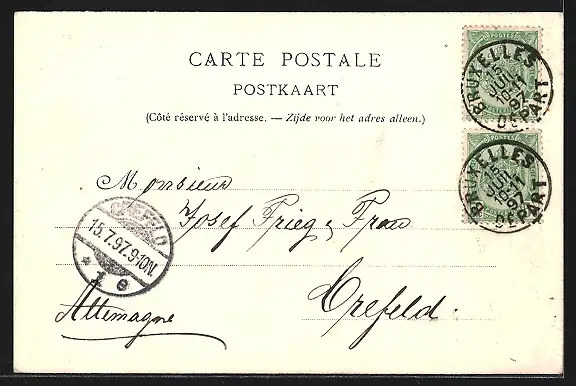 CARTE POSTALE
POSTKAART
(Côté réservé à l'adresse. — Zijde voor het adres alleen.)
POSTES
BRUXELLES
15
JUIL
1897
DÉPART
BRUXELLES
15
JUIL
1897
DÉPART
Monsieur
Josef
Crefeld.
Allemagne
CREFELD
15.7.97.9-10N.
* 1 e